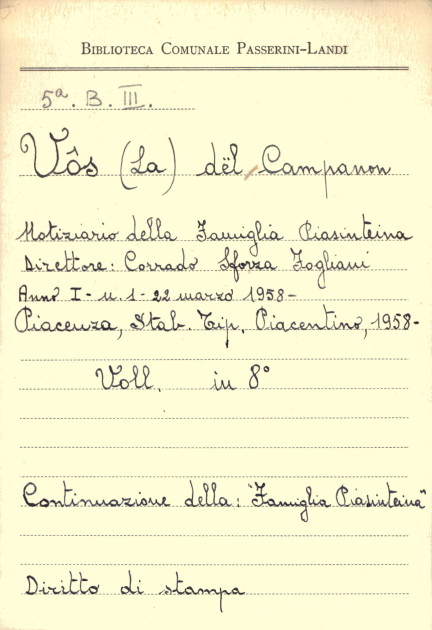 Biblioteca Comunale Passerini-Landi
5ª. B. III.
Vôs (La) dël Campanon
Notiziario della Famiglia Piasinteina
Direttore: Corrado Sforza Fogliani
Anno I - n. 1 - 22 marzo 1958 -
Piacenza, Stab. Tip. Piacentino, 1958 -
Voll. in 8°
Continuazione della: "Famiglia Piasinteina"
Diritto di stampa